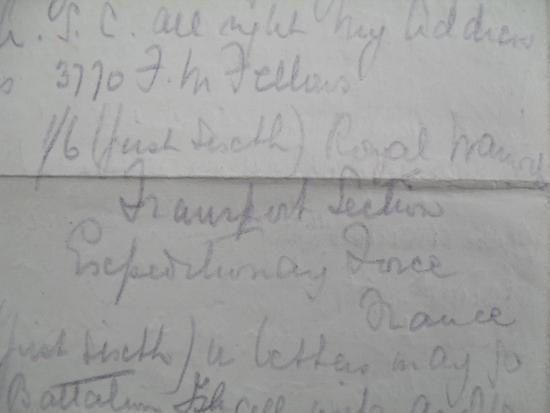 S. C. all right My Address
3770 F. M Fellows
1/6 (first Sixth) Royal Warwi
Transport Section
Expeditionary Force
France
first Sixth) letters may go
Battalion